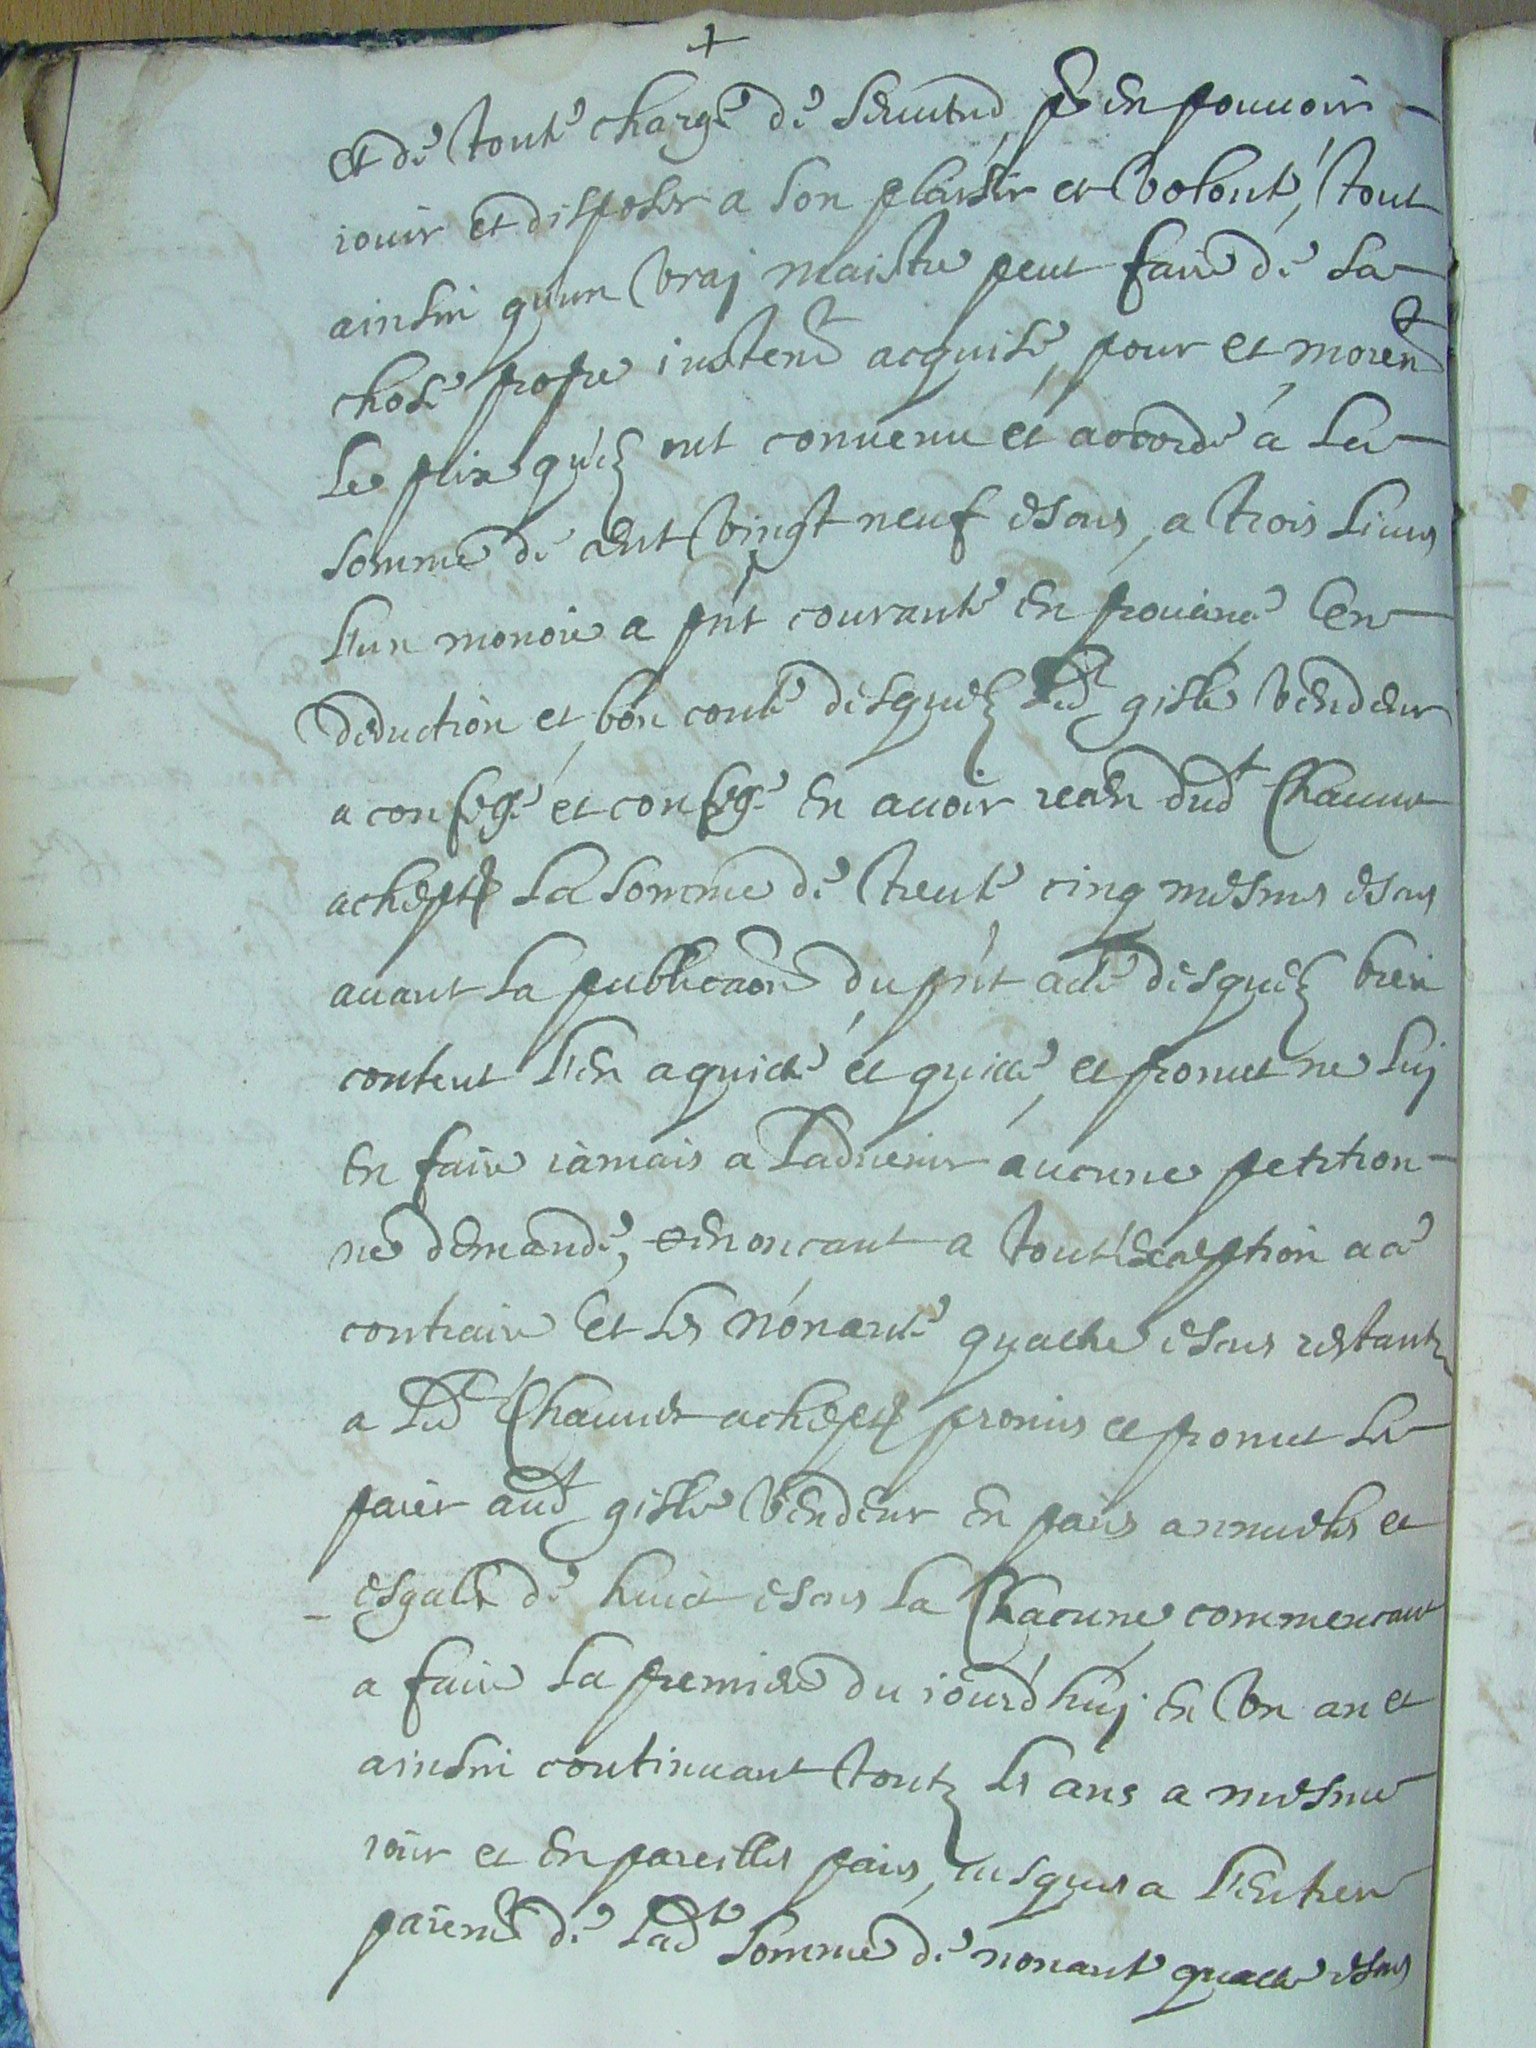 +
et de toute charge de servitud, pr en pouvoir
iouir et disposer a son plaisir et volonté, tout
ainsin qu'un vraj maistre peut faire de sa
chose propre iustemt acquise, pour et moient
le prix qu'ilz ont convenu et accordé a la
somme de cent vingt neuf escus, a trois liures
l'un monoie a pnt courante en prouance en
deduction et bon conte desquelz led gisle vendeur
a confessé et confesse en auoir receu dudt Chauuet
achepter la somme de trente cinq mesmes escus
auant la publicaon du pnt acte desquelz bien
content l'en a quicté et quicte, et promet ne luj
en faire iamais a l'aduenir aucune petition
ne demande, renoncant a tout'exception a ce
contraire et les nonante quatre escus restantz
a led Chauuet achepter promis et promet les
paier audt gisle vendeur en paies annuelles et
esgales de huict escus la Chacune commencant
a faire la premiere du iourd'huj en vn an et
ainsin continuant toutz les ans a mesme
iour et en pareilles paies, iusques a l'entier
paiemt de ladte somme de nonante quatre escus